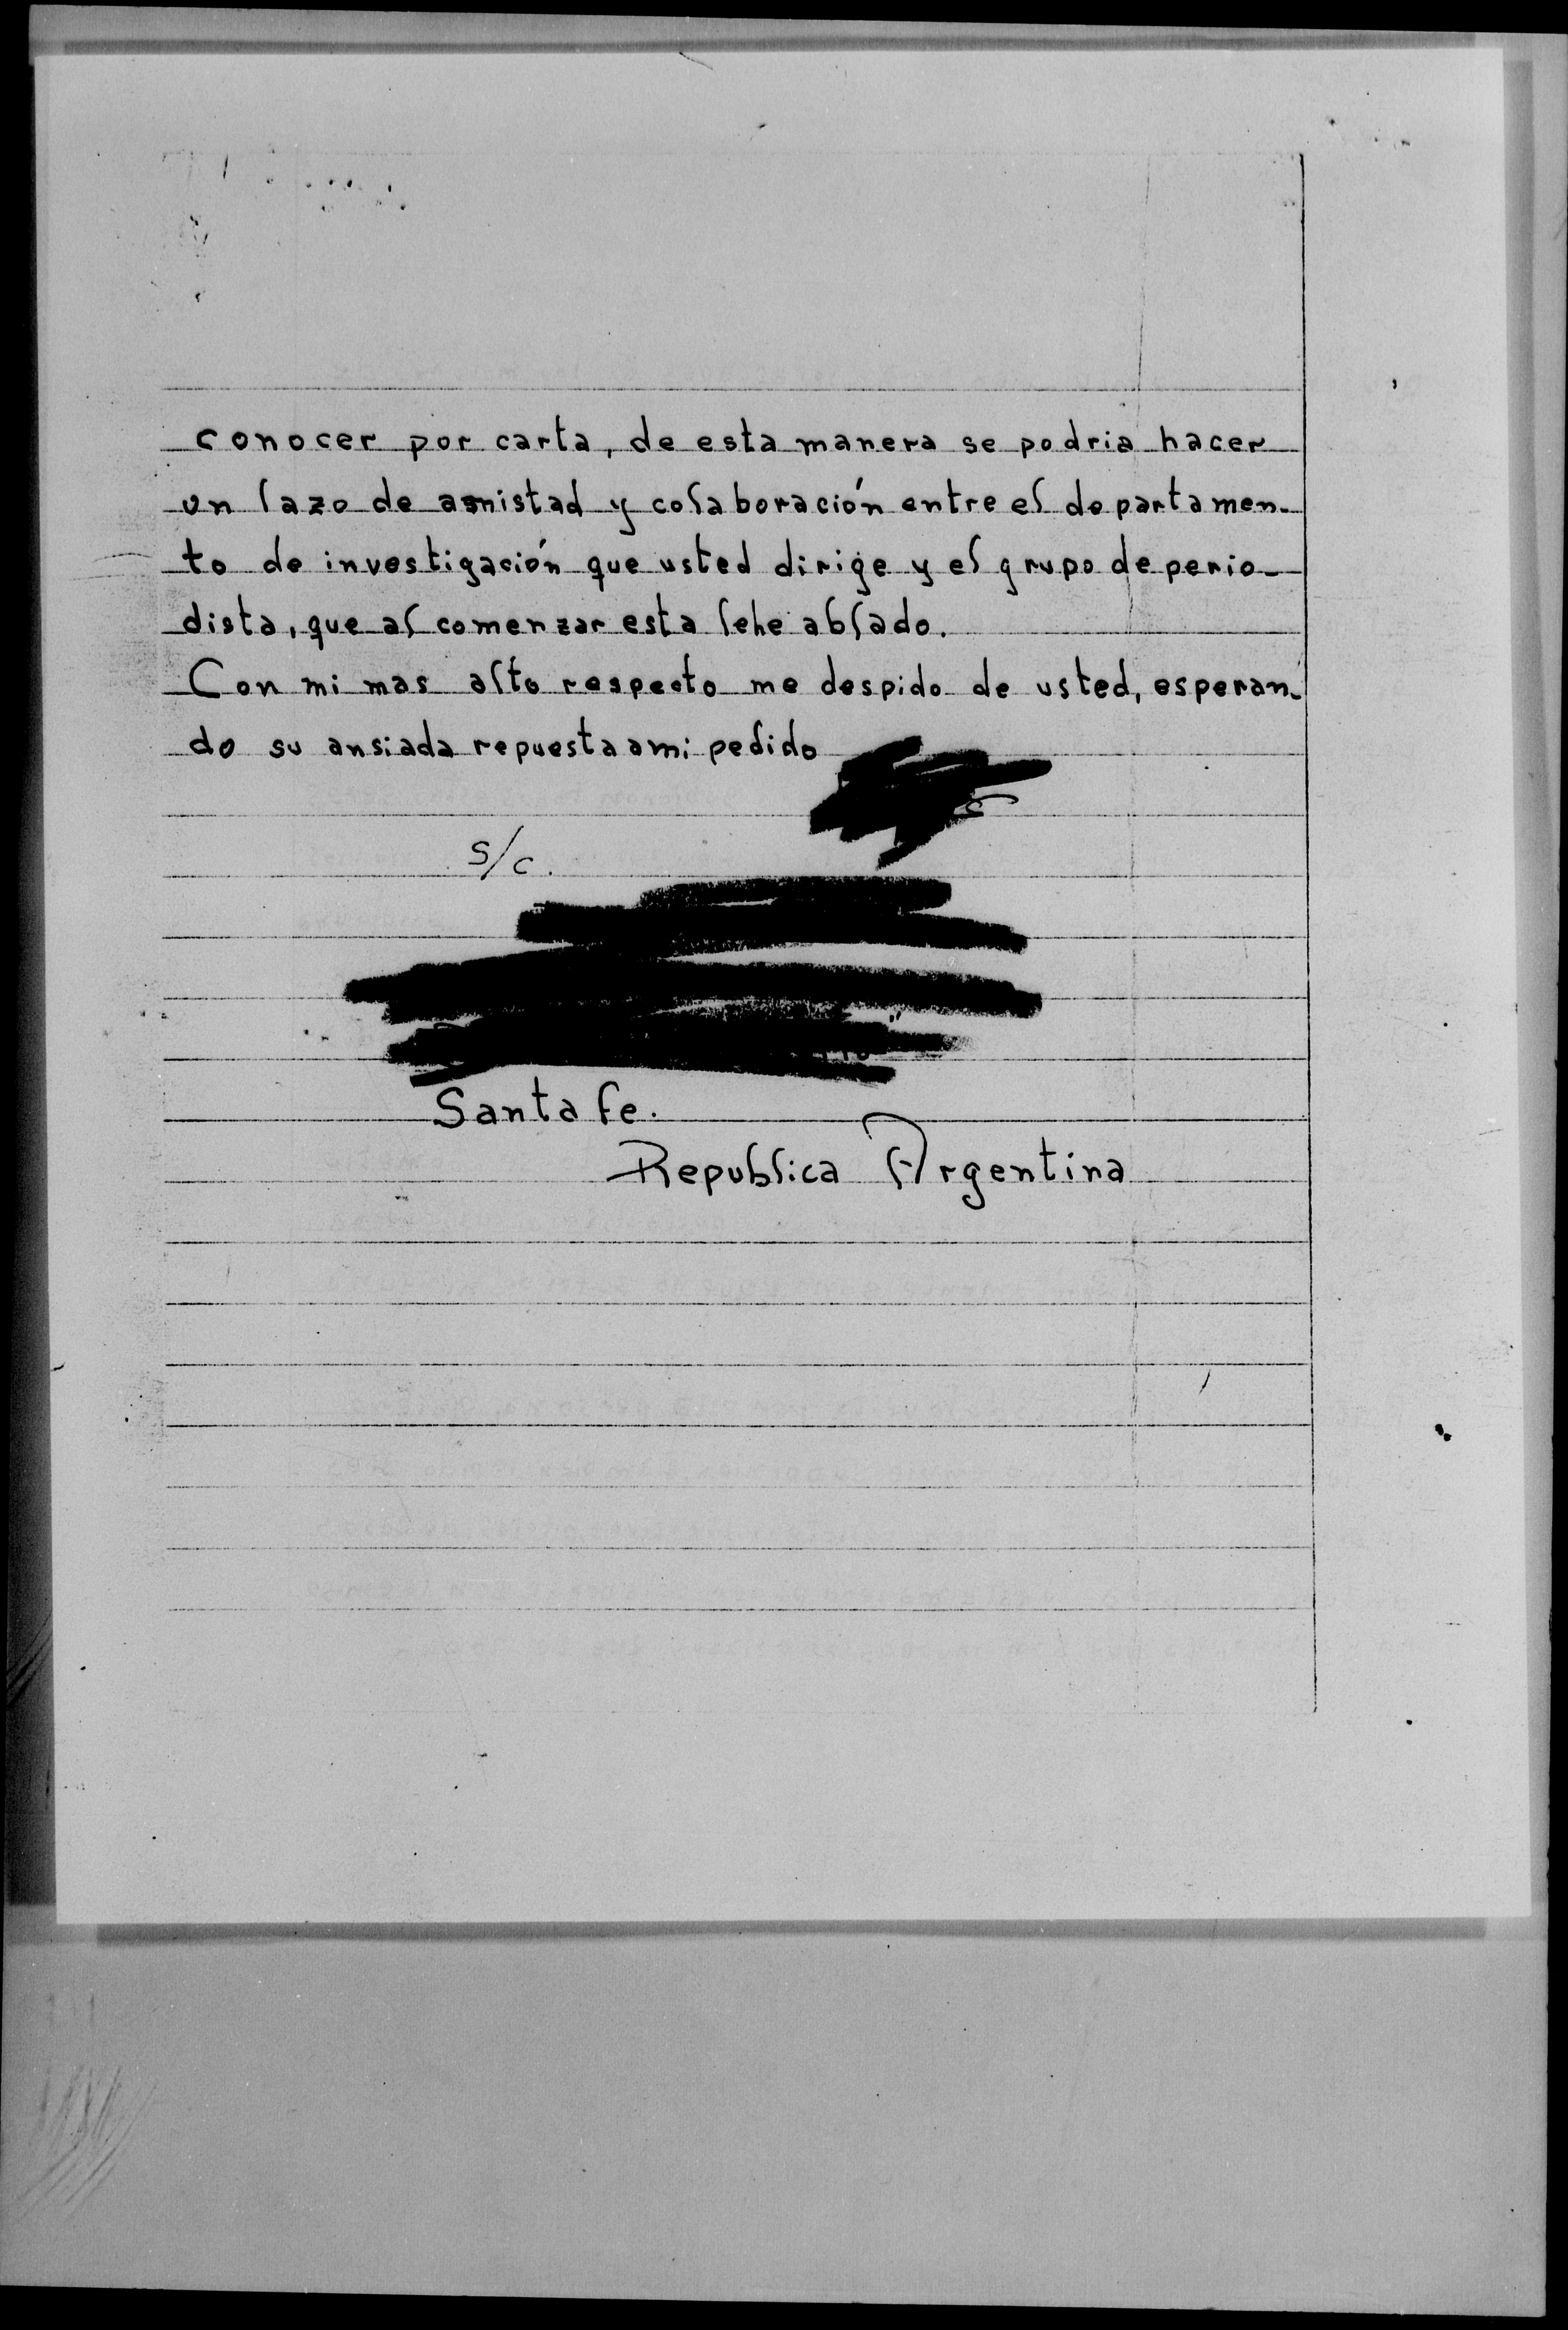 conocer por carta, de esta manera se podria hacer
un lazo de amistad y colaboración entre el departamen-
to de investigación que usted dirige y el grupo de perio-
dista, que al comenzar esta lehe ablado.
Con mi mas alto respecto me despido de usted, esperan-
do su ansiada repuesta a mi pedido
S/c.
Santa Fe.
Republica Argentina